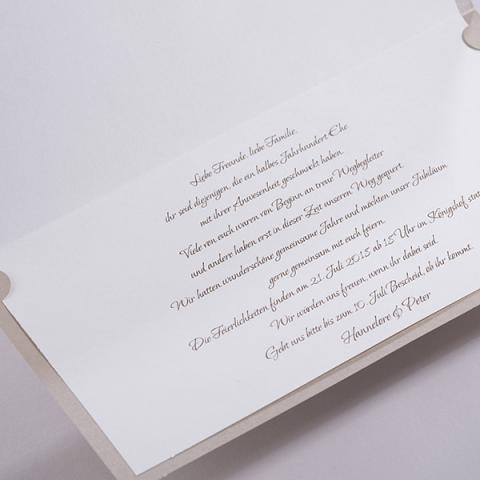 Liebe Freunde, liebe Familie,
ihr seid diejenigen, die ein halbes Jahrhundert Ehe
mit ihrer Anwesenheit geschmückt haben.
Viele von euch waren von Beginn an treue Wegbegleiter
und andere haben erst in dieser Zeit unseren Weg gequert.
Wir hatten wunderschöne gemeinsame Jahre und möchten unser Jubiläum
gerne gemeinsam mit euch feiern.
Die Feierlichkeiten finden am 21. Juli 2015 ab 15 Uhr im Königshof statt
Wir würden uns freuen, wenn ihr dabei seid.
Gebt uns bitte bis zum 10. Juli Bescheid, ob ihr kommt.
Hannelore & Peter